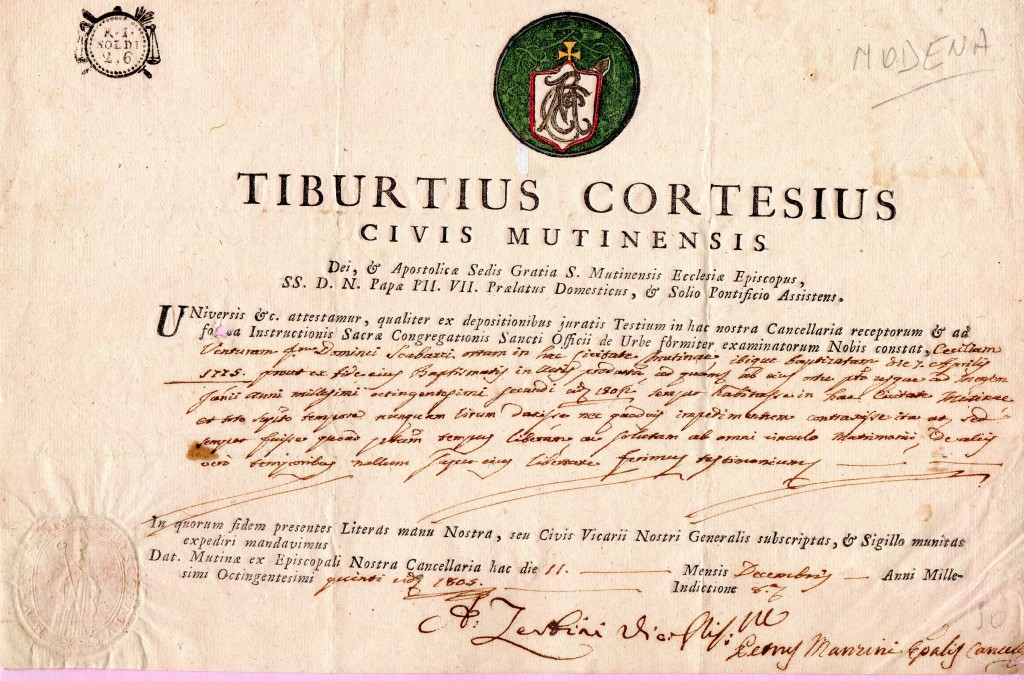 R. I.
SOLDI
2. 6
MODENA
TIBURTIUS CORTESIUS
CIVIS MUTINENSIS
Dei, & Apostolicæ Sedis Gratia S. Mutinensis Ecclesiæ Episcopus,
SS. D. N. Papæ PII. VII. Prælatus Domesticus, & Solio Pontificio Assistens.
UNiversis &c. attestamur, qualiter ex depositionibus juratis Testium in hac nostra Cancellaria receptorum & ad
forma Instructionis Sacræ Congregationis Sancti Officii de Urbe fòrmiter examinatorum Nobis constat, Ceciliam
Venturam Dominici ortam in hac Civitate Mutinae ibique baptizatam die 7. Aprilis
1775. prout ex fide ejus Baptismatis in Actis ad ab usque ad
Junii Anni millesimi octingentesimi secundi semper habitasse in hac Civitate Mutinae
et toto tempore nunquam virum duxisse nec quodvis impedimentum contraxisse ita ut, sed
semper fuisse quoad tempus liberam ac solutam ab omni vinculo Matrimonii De aliis
vero temporibus nullum super ejus libertate ferimus testimonium
In quorum fidem presentes Literas manu Nostra, seu Civis Vicarii Nostri Generalis subscriptas, & Sigillo munitas
expediri mandavimus
Dat. Mutinæ ex Episcopali Nostra Cancellaria hac die 11. Mensis Decembris Anni Mille-
simi Octingentesimi quinti 1805. Indictione 8.
Zerbini
Petrus Manzini
30